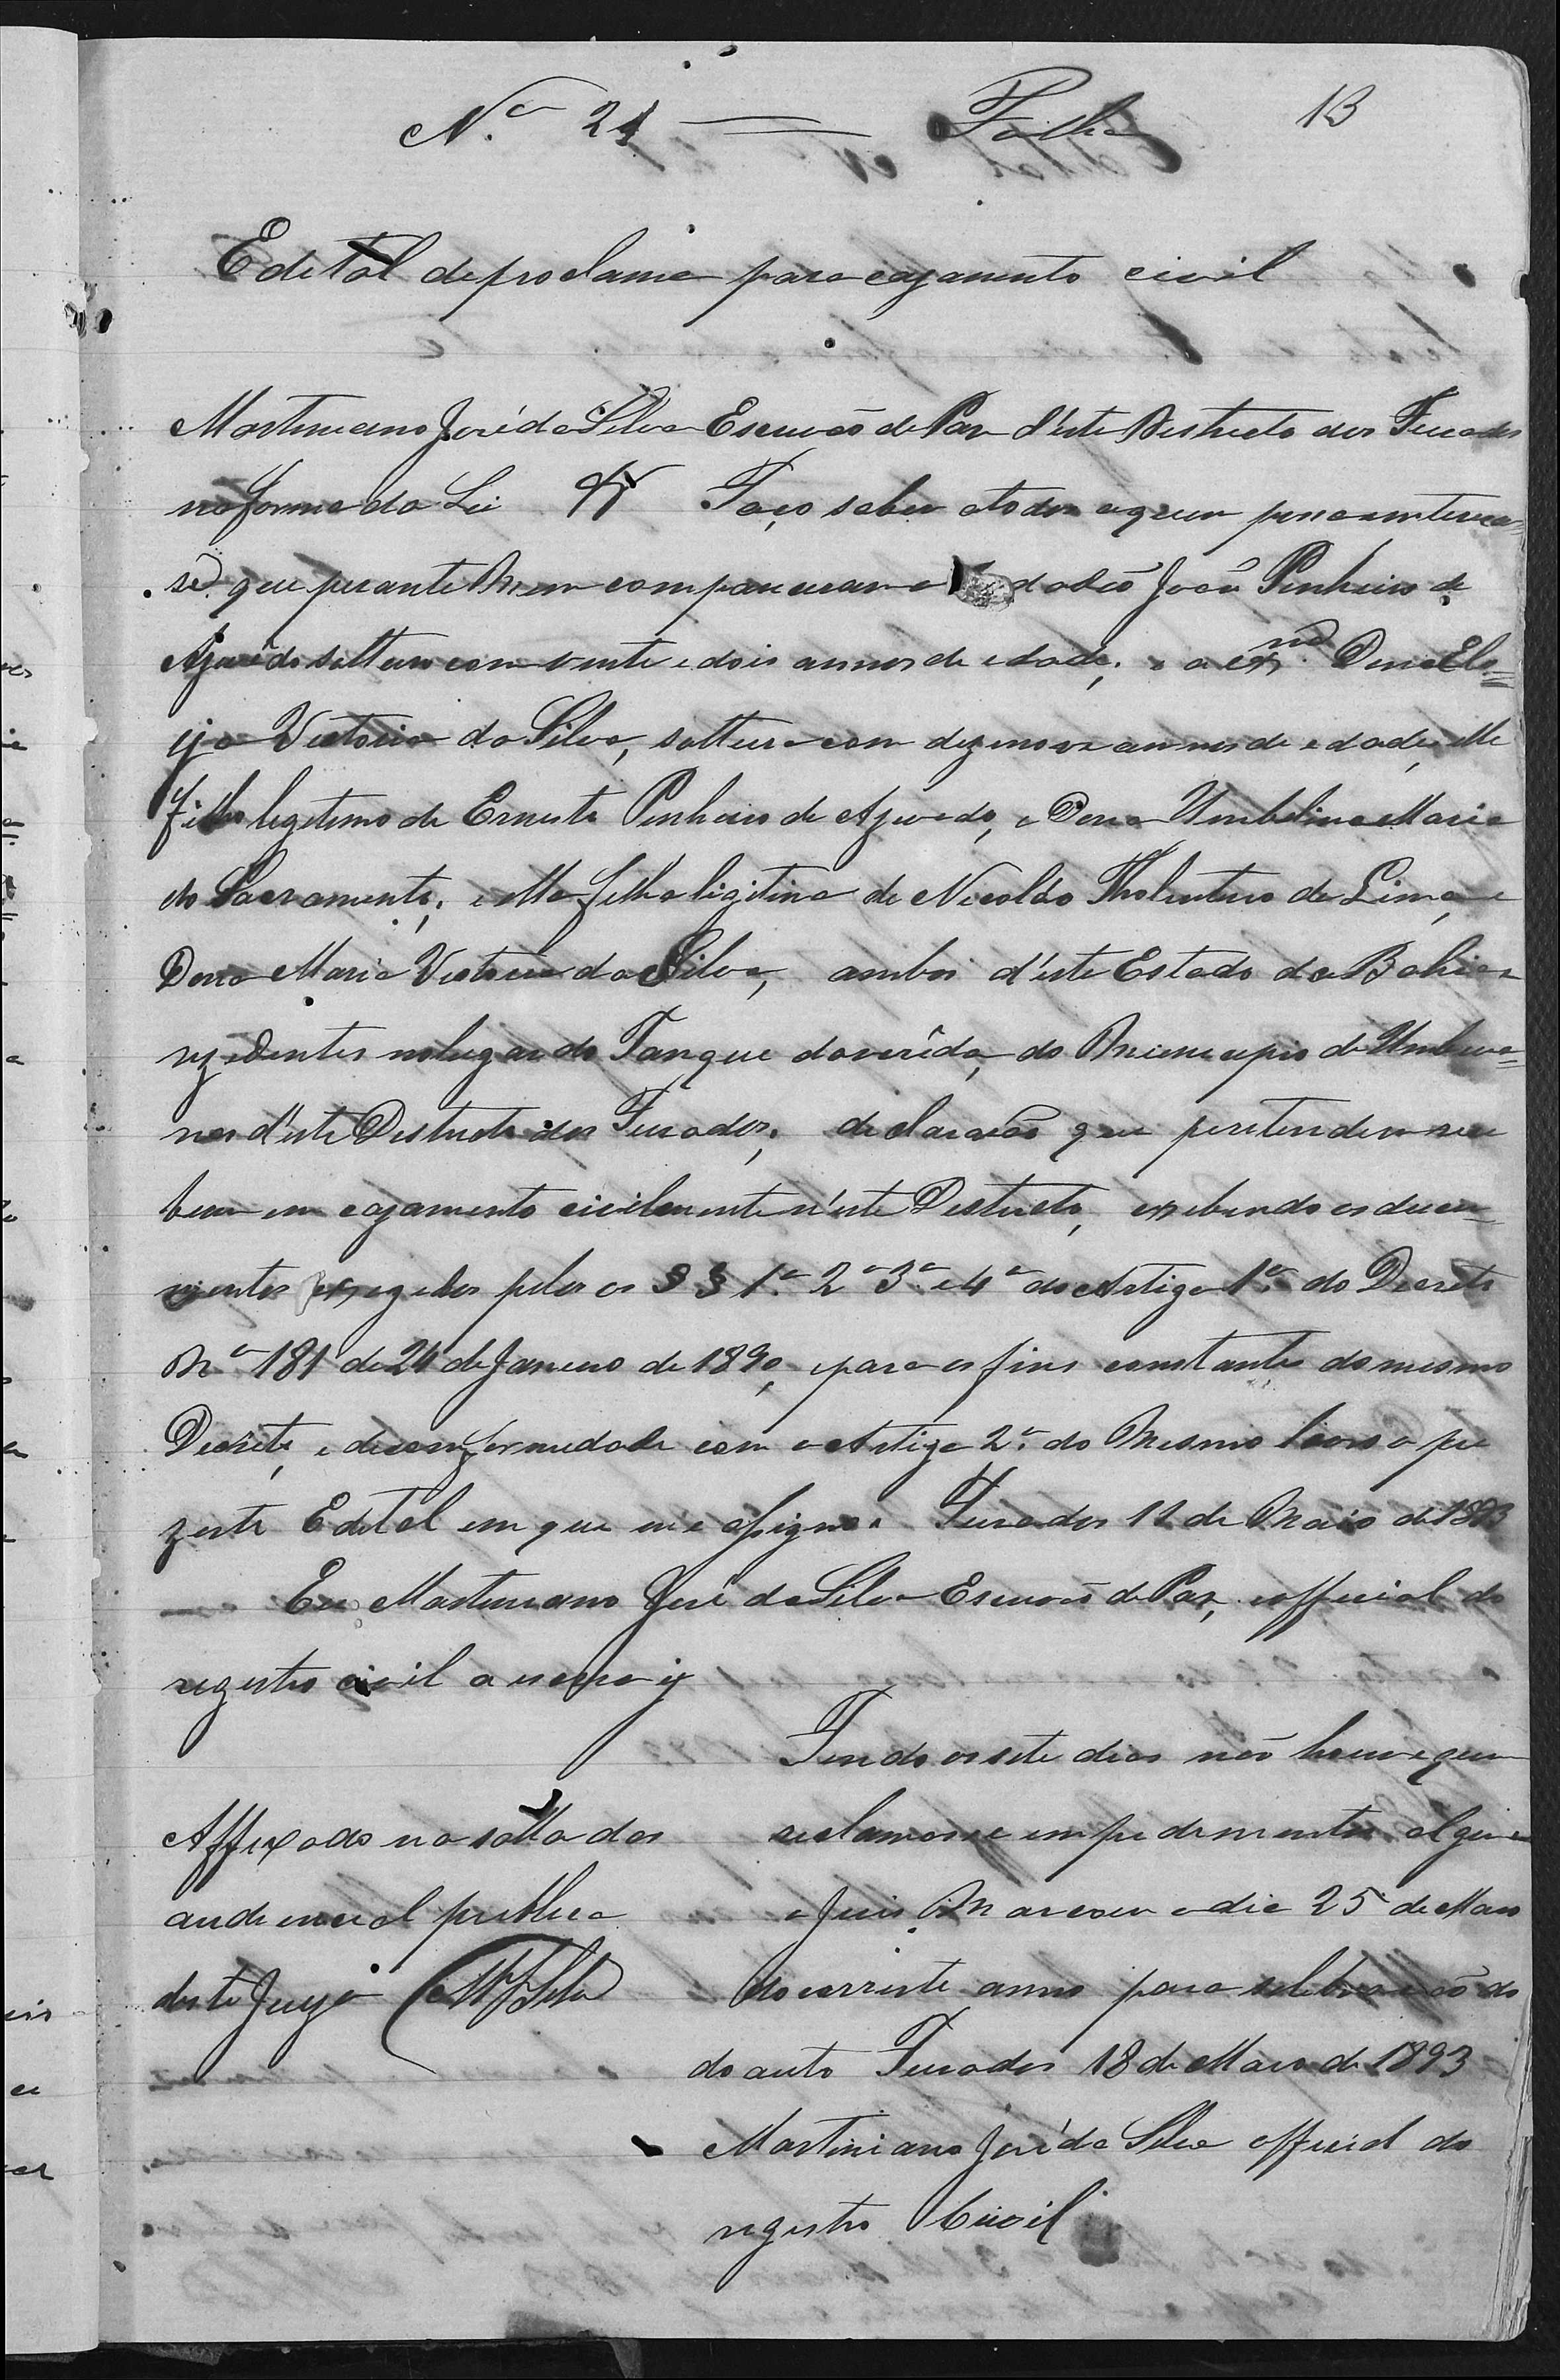 N.º 21 Folha 13
Edital de proclama para cazamento civil
Martiniano José da Silva Escrivão de Paz d'este Destricto dos Ferrados
na forma da Lei Faço saber a todos a quem
sê que perante Mim compareceram o Cidadão João Pinheiro de
Azevêdo solteiro com vinte e dois annos de edade; e a Exmª Dona Ela-
Victoria da Silva, solteira com dezenove annos de edade, elle
filho legitimo de Ernesto Pinheiro de Azevedo, e Dona Umbelina Maria
do Sacramento; e ella filha ligitima de Nicoláo Tholentino de Lima, e
Dona Maria Victoria da Silva, ambos d'este Estado da Bahia
rezidentes no lugar do Tanque da verêda, do Municipio de
nos d'este Destricto dos Ferrados; declararão que pretendem rece
berem em cazamento civilmente n'este Destricto, exebindo os docu-
mentos exegidos pelos os §§ 1º 2º 3º e 4º do Artigo 1º do Decreto
Nº 181 de 24 de Janeiro de 1890, e para os fins constantes do mesmo
Decreto, e de conformedade com o Artigo 2º do Mesmo lavro o pre
zente Edital em que me assigno. Ferrados 11 de Maio de 1893
Eu Martiniano José da Silva Escrivão de Paz, e official do
registro civil o escrevy
Tendo os sete dias não houve quem
Affixado na salla das reclamasse impedimento algum
audiencial publica o Juis Marcou o dia 25 de Maio
deste Juizo MJSilva do corrente anno para selebração do
do auto Ferrados 18 de Maio de 1893
Martiniano José da Silva official do
registro Civil